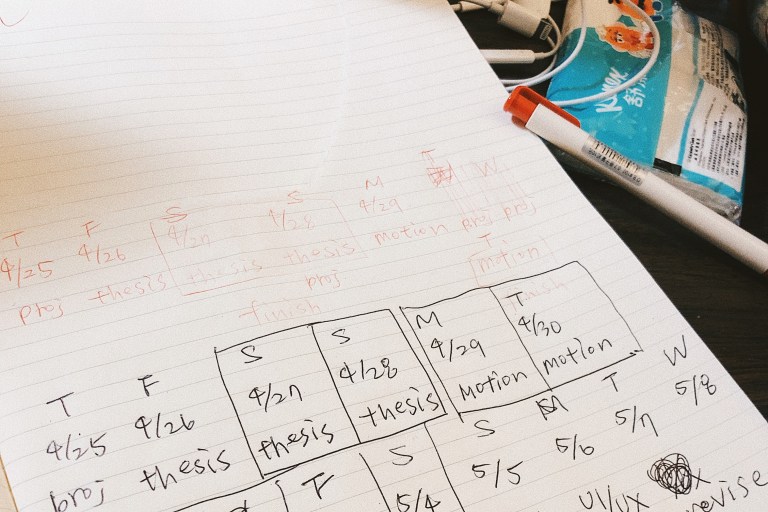 T F S S M T W
4/25 4/26 4/27 4/28 4/29
proj thesis thesis thesis motion proj proj
proj T
finish motion
finish
T F S S M T
4/25 4/26 4/27 4/28 4/29 4/30
proj thesis thesis thesis motion motion
F S S M T W
5/4 5/5 5/6 5/7 5/8
UI/UX revise
Kleenex
舒